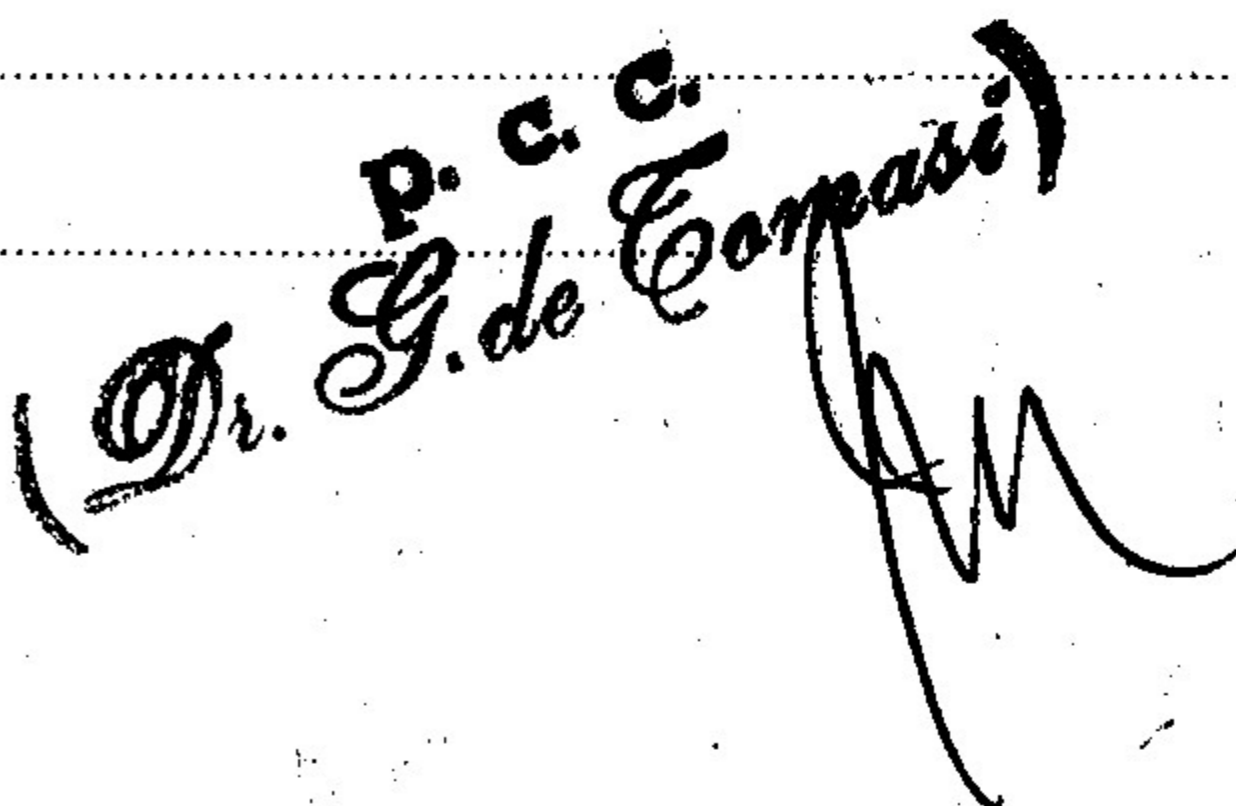 p. c. c.
(Dr. G. de Tomasi)